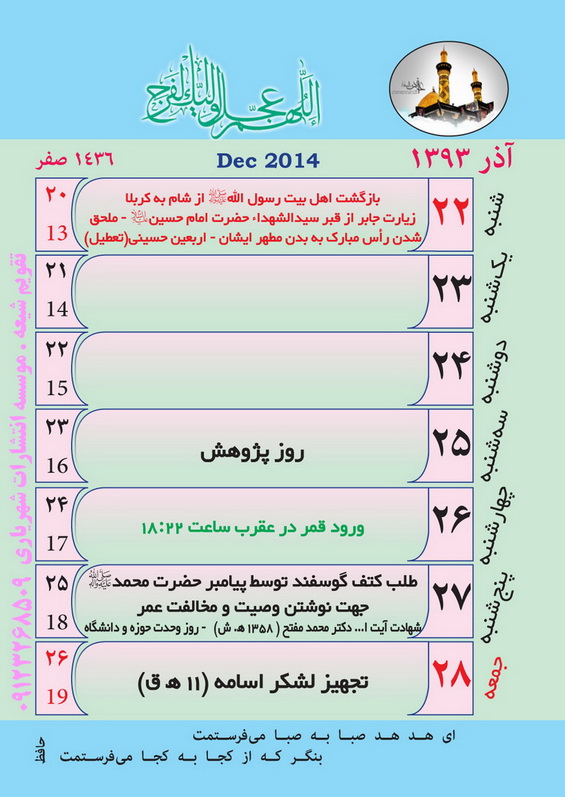 اللهم عجل لولیك الفرج
آذر ۱۳۹۳
Dec 2014
۱۴۳۶ صفر
شنبه
۲۲
بازگشت اهل بیت رسول الله ﷺ از شام به کربلا
زیارت جابر از قبر سیدالشهداء حضرت امام حسین - ملحق
شدن رأس مبارک به بدن مطهر ایشان - اربعین حسینی(تعطیل)
۲۰
13
یک‌شنبه
۲۳
۲۱
14
دوشنبه
۲۴
۲۲
15
سه‌شنبه
۲۵
روز پژوهش
۲۳
16
چهارشنبه
۲۶
ورود قمر در عقرب ساعت ۱۸:۲۲
۲۴
17
پنج‌شنبه
۲۷
طلب کتف گوسفند توسط پیامبر حضرت محمد ﷺ
جهت نوشتن وصیت و مخالفت عمر
شهادت آیت ا... دکتر محمد مفتح ( ۱۳۵۸ ه‍. ش) - روز وحدت حوزه و دانشگاه
۲۵
18
جمعه
۲۸
تجهیز لشکر اسامه (۱۱ ه‍ ق)
۲۶
19
تقویم شیعه . موسسه انتشارات شهریاری ۰۹۱۲۳۲۶۸۵۰۹
ای هد هد صبا به صبا می‌فرستمت
بنگر که از کجا به کجا می‌فرستمت
حافظ